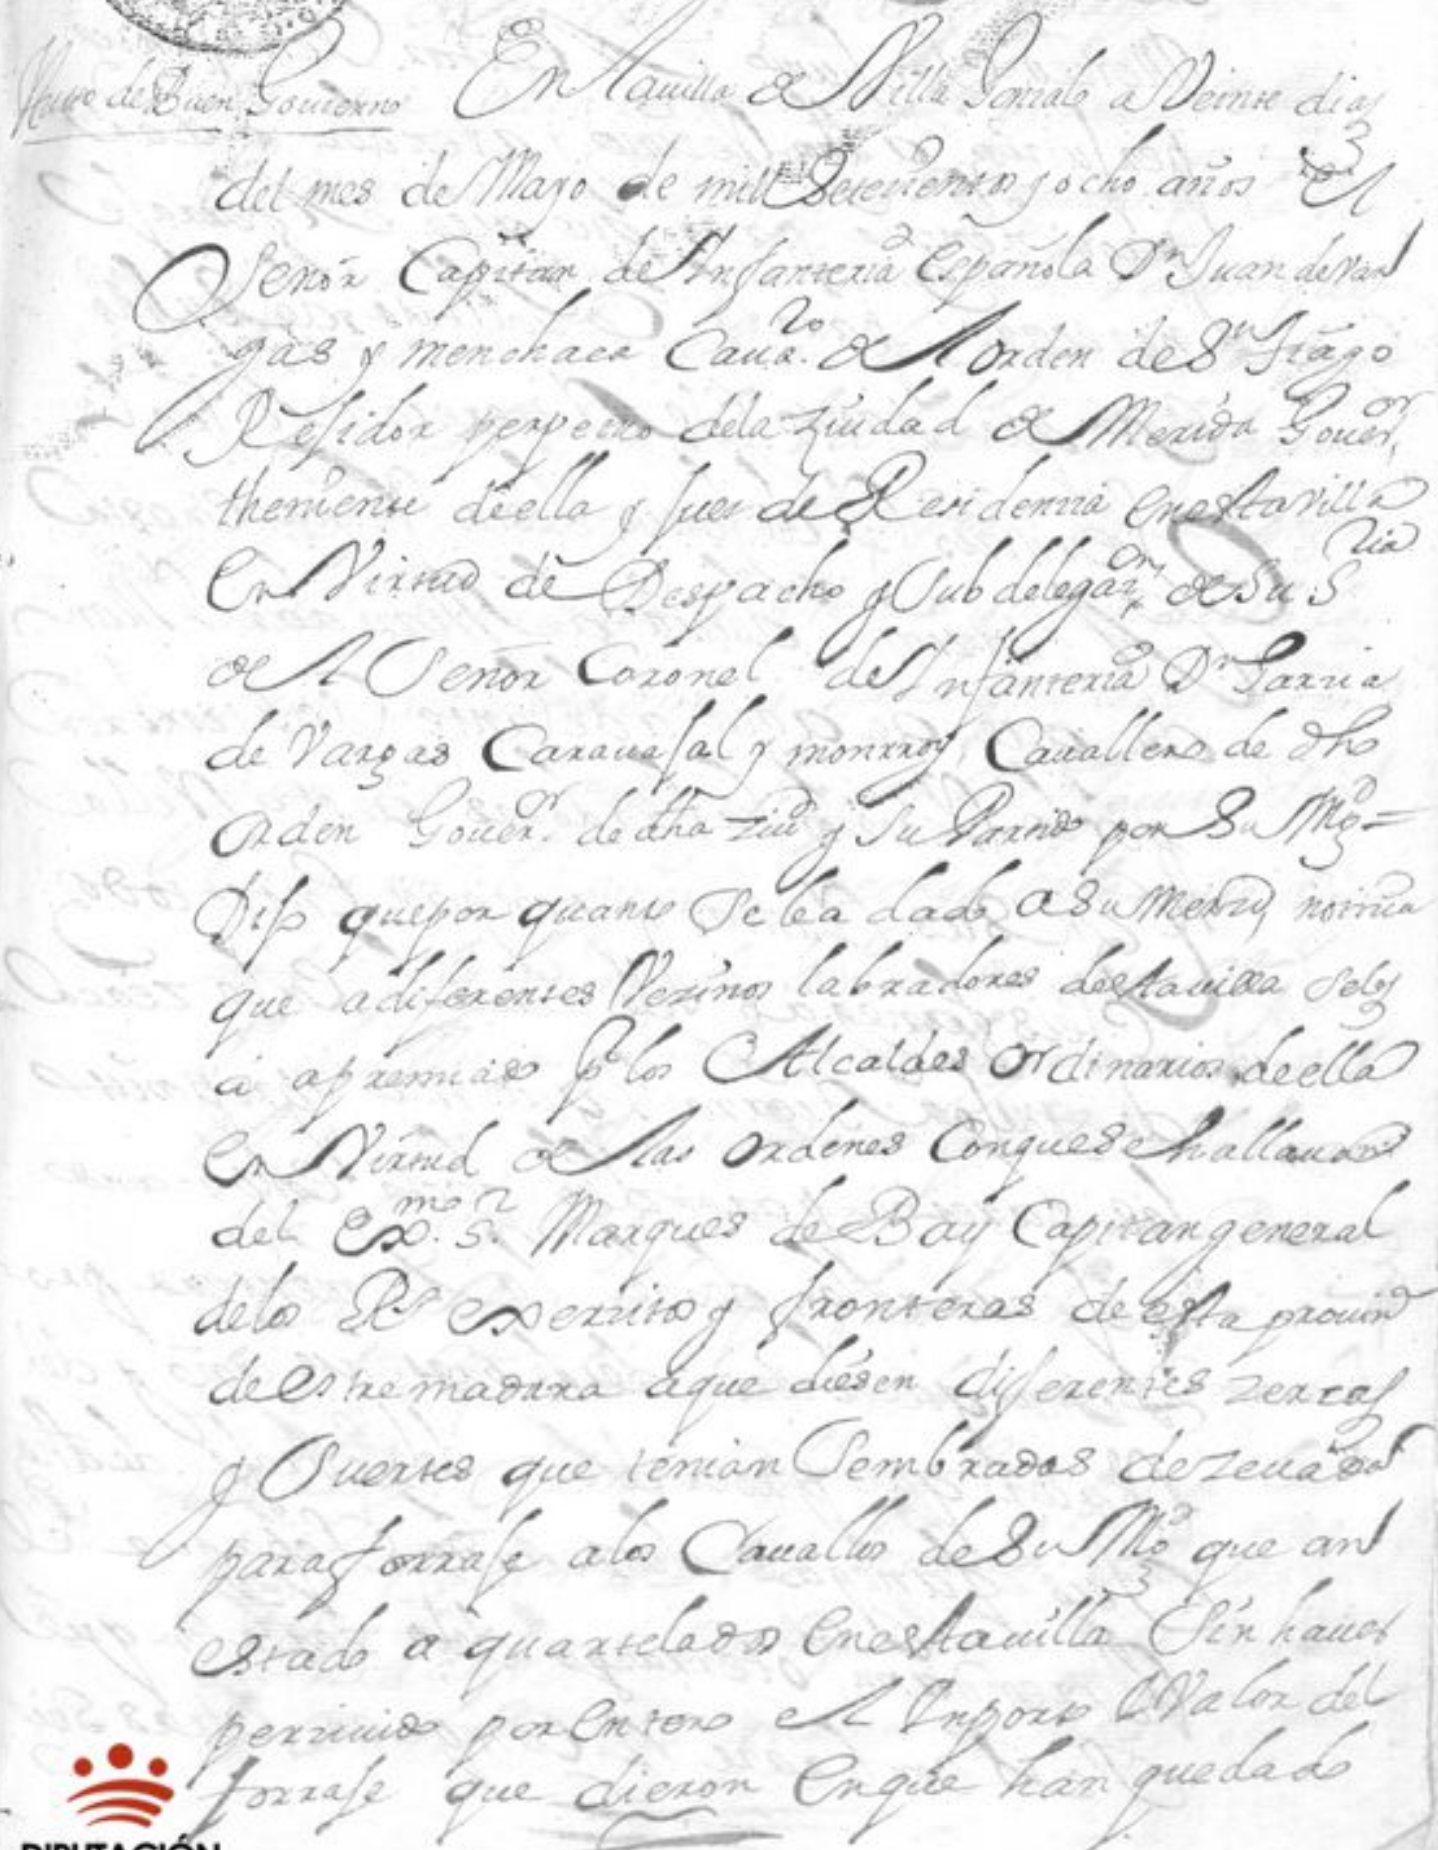 Auto de Buen Gouierno
En la uilla de Villa Gonzalo a Veinte dias
3
del mes de Mayo de mill Setecientos y ocho años el
Señor Capitan de Infanteria española Dn Juan de Var
gas y menchaca Cauaro. de el orden de Sn tiago
Refidor perpetuo dela ziudad de Merida Gouer.or
theniente de ella y Juez de Residenzia en esta villa
en Virtud de Despacho y Subdelegazon de Su Sria
de el Señor Coronel de Infanteria Dn Garzia
de Vargas Carauajal y monrroy Cauallero de dho
orden Gouer.or de dha ziud y Su Partido por Su Mgd =
Dijo que por quanto Se le a dado a Su merzd notizia
que a diferentes Vezinos labradores de esta uilla Se les
a apremiado pr los Alcaldes ordinarios de ella
en Virtud de las ordenes Con que Se hallauan
del Exmo. Sr. Marques de Bay Capitan general
de los Rs exerzitos y fronteras de esta prouinz
de estremadura a que diesen diferentes zercas
y Suertes que tenian Sembrados de zeuada
para forraje a los Cauallos de Su Mgd que an
estado a quartelados en esta uilla Sin hauer
perziuido por entero el Inporte e Valor del
forraje que dieron en que han quedado
DIPUTACIÓN